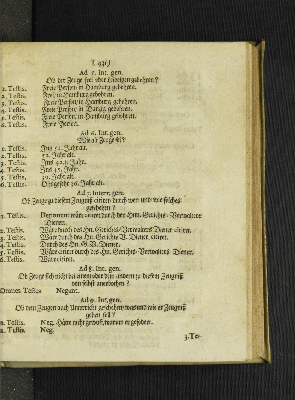 ( 93 )
Ad 5. Int. gen.
Ob der Zeuge frei oder Leibeigen gebohren?
1. Testis. Freie Person in Hamburg gebohren.
2. Testis. Frei in Hamburg gebohren.
3. Testis. Freie Person in Hamburg gebohren.
4. Testis. Freie Person in Hamburg gebohren.
5. Testis. Freie Person in Hamburg gebohren.
6. Testis. Freie Person.
Ad 6. Int. gen.
Wie alt Zeuge sei?
1. Testis. Ins 51. Jahr alt.
2. Testis. Jahr alt.
3. Testis. Ins Jahr.
4. Testis. Ins Jahr.
5. Testis. Jahr alt.
6. Testis. Ohngefehr 30. Jahr alt.
Ad 7. Interr. gen.
Ob Zeuge zu diesem Zeugniß citiret durch wen und wie solches
geschehen?
1. Testis. wäre citiret durch den Herrn Gerichts-Verwalters
Diener.
2. Testis. Wäre durch des Hn. Gerichts-Verwalters Diener citiret.
3. Testis. Wäre durch des Hn. Gerichts V. Diener citiret.
4. Testis. Durch des Hn. G. V. Diener.
5. Testis. Wäre citiret durch des Hn. Gerichts-Verwalters Diener.
6. Testis. Wäre citiret.
Ad 8. Int. gen.
Ob Zeuge sich nicht bei einem oder dem andern zu diesem Zeugniß
von selbst anerbohten?
Omnes Testes Negant.
Ad 9. Int. gen.
Ob dem Zeugen auch Unterricht geschehen, was und wie er Zeugniß
geben soll?
1. Testis. Neg. Hätte nicht gewust, warum er gefodert.
2. Testis. Neg.
3. Te-